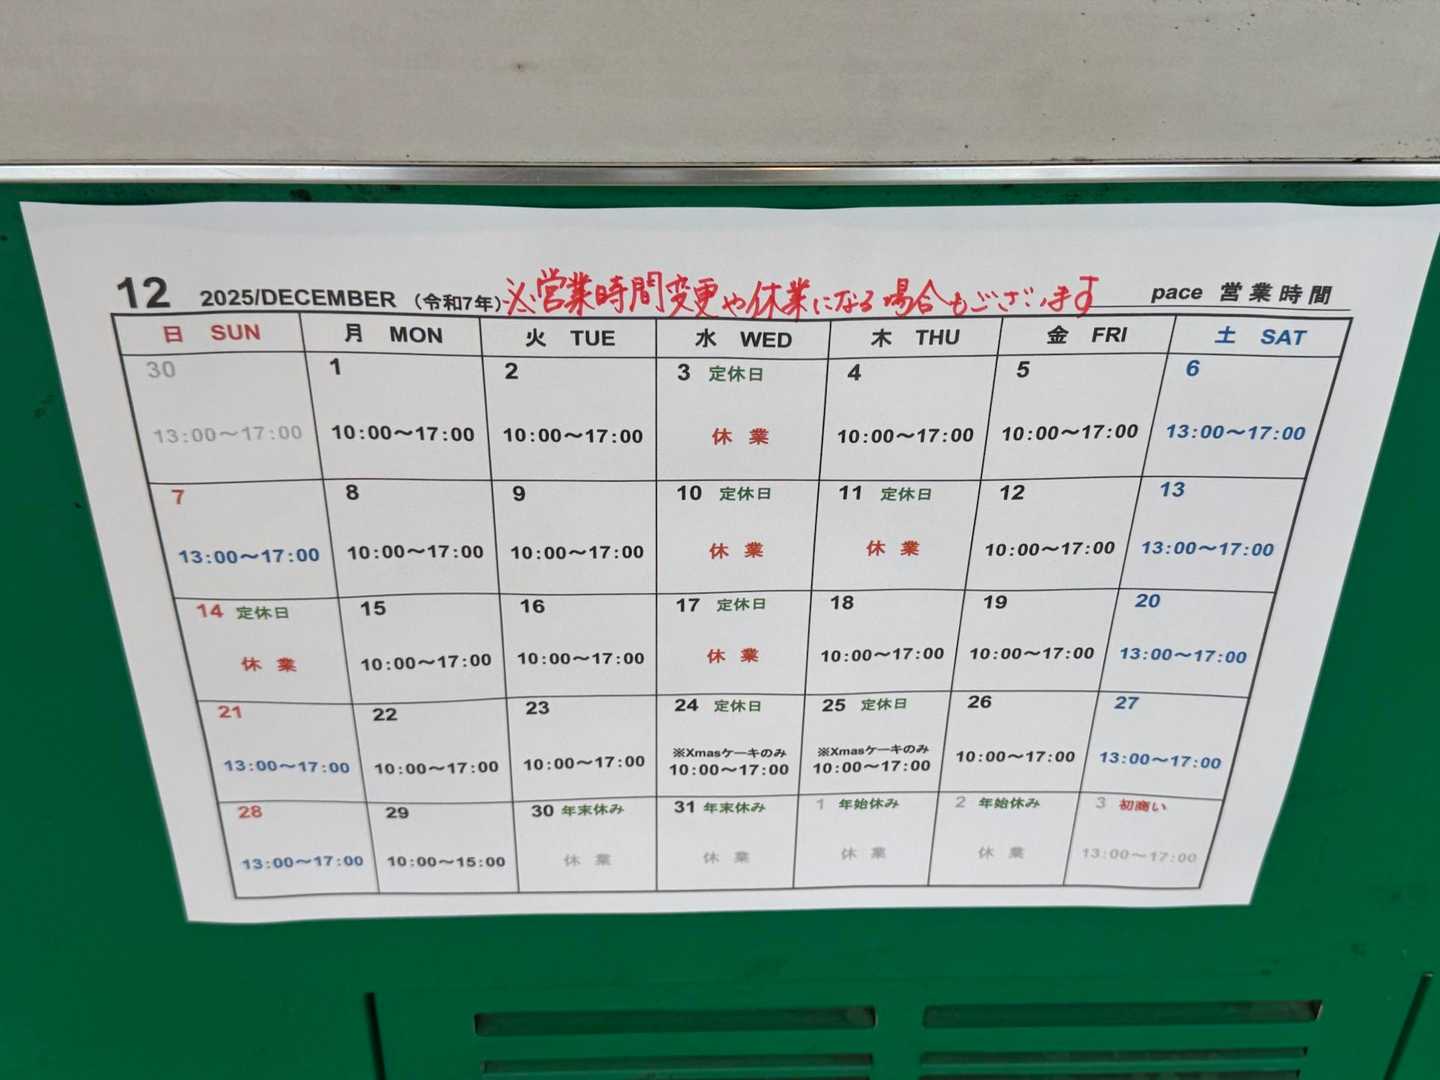 12 2025/DECEMBER (令和7年) ※営業時間変更や休業になる場合もございます pace 営業時間
日 SUN 月 MON 火 TUE 水 WED 木 THU 金 FRI 土 SAT
30 1 2 3 定休日 4 5 6
13:00～17:00 10:00～17:00 10:00～17:00 休業 10:00～17:00 10:00～17:00 13:00～17:00
7 8 9 10 定休日 11 定休日 12 13
13:00～17:00 10:00～17:00 10:00～17:00 休業 休業 10:00～17:00 13:00～17:00
14 定休日 15 16 17 定休日 18 19 20
休業 10:00～17:00 10:00～17:00 休業 10:00～17:00 10:00～17:00 13:00～17:00
21 22 23 24 定休日 25 定休日 26 27
※Xmasケーキのみ ※Xmasケーキのみ
13:00～17:00 10:00～17:00 10:00～17:00 10:00～17:00 10:00～17:00 10:00～17:00 13:00～17:00
28 29 30 年末休み 31 年末休み 1 年始休み 2 年始休み 3 初商い
13:00～17:00 10:00～15:00 休業 休業 休業 休業 13:00～17:00